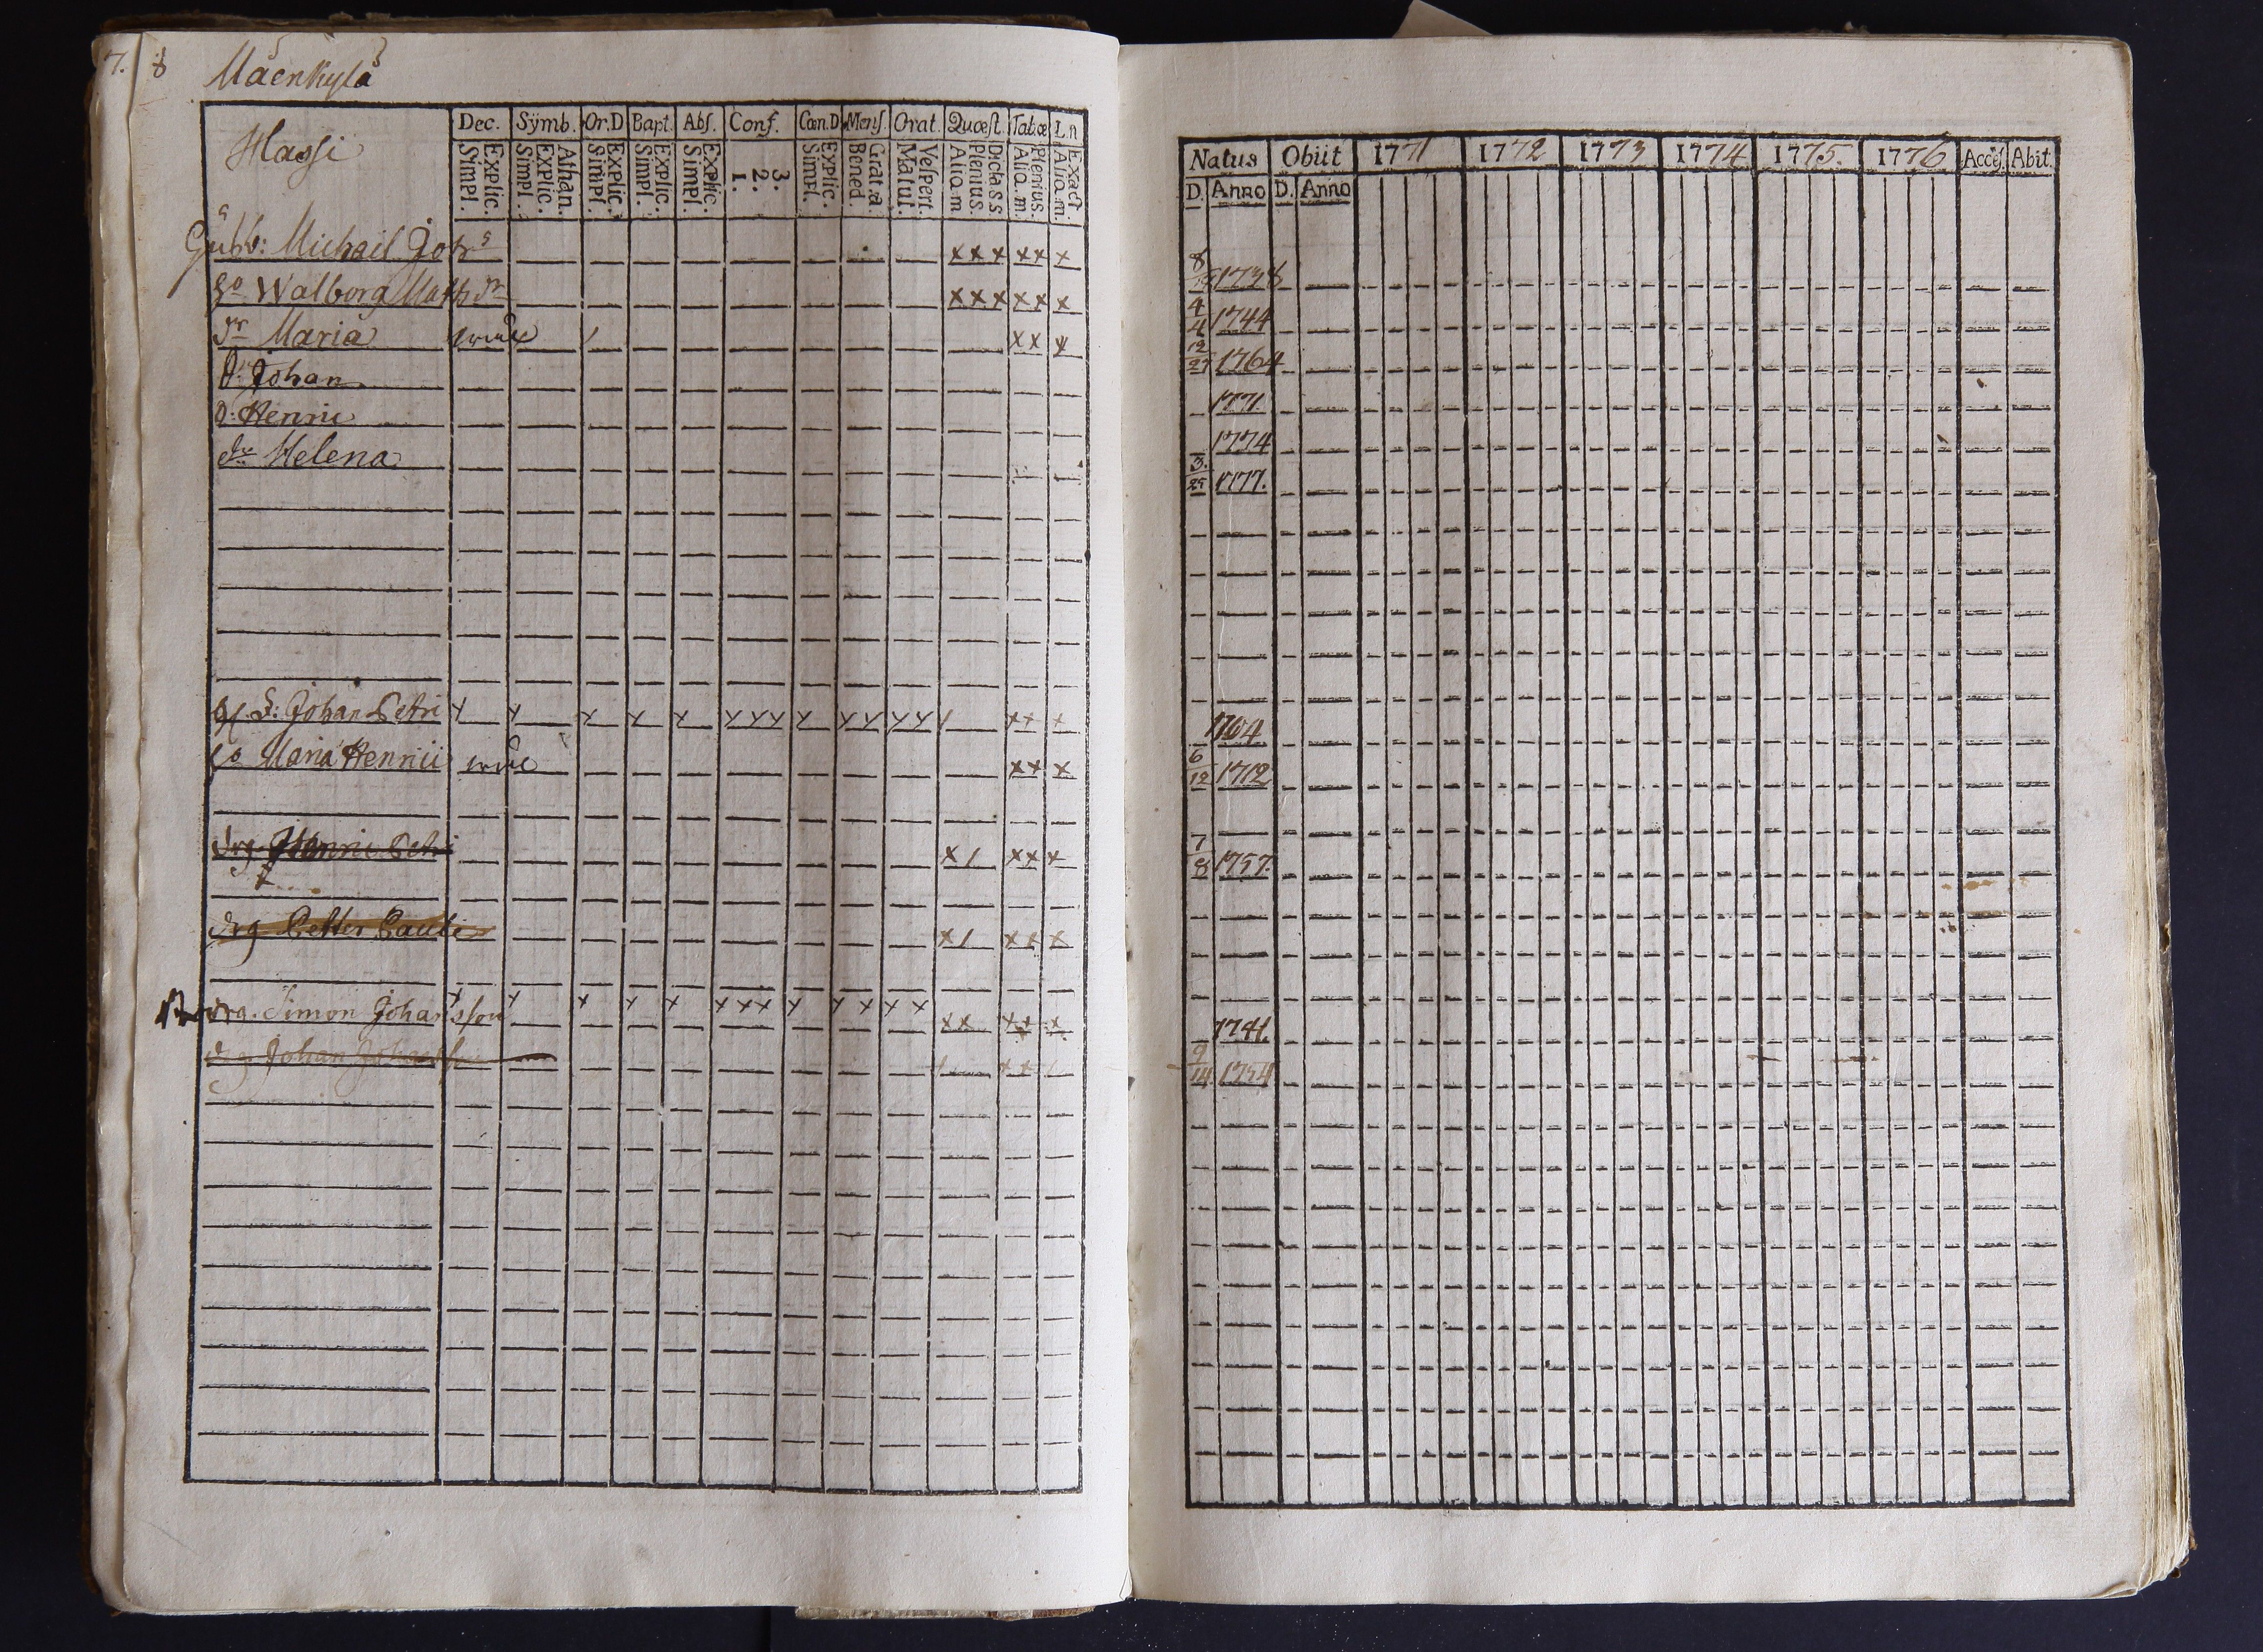 7. 8 Mäenkylä
Hassi
Dec. Sÿmb. Or.D Bapt. Abs. Conf. Cœn.D Mens. Orat. Quæst. Tabæ L.n
Simpl. Explic. Simpl. Explic. Athan. Simpl. Explic. Simpl. Explic. Simpl. Explic. 1. 2. 3. Simpl. Explic. Bened. Grat.a. Matut. Vespert. Aliq.m Plenius. Dictass Aliq.m. Plenius. Aliq.m. Exact.
Michail Johs x x x x x x
ho Walborg Matthdr x x x x x x
dr Maria x x x
Johan
D: Henric
dr Helena
Johan Petri x x x x x x x x x x x x x / x x x
ho Maria Henrici x x x
drg Henric Petri x / x x x
drg Petter Pauli x / x x x
drg. Simon Johansson x x x x x x x x x x x x x x x x x x
drg Johan / x x /
Natus Obiit 1771 1772 1773 1774 1775. 1776 Acces. Abit.
D. Anno D. Anno
1738
4/4 1744
12/27 1764
1771.
1774
3/25 1777.
1764
6/12 1712
7/8 1757.
1741.
9/14 1754